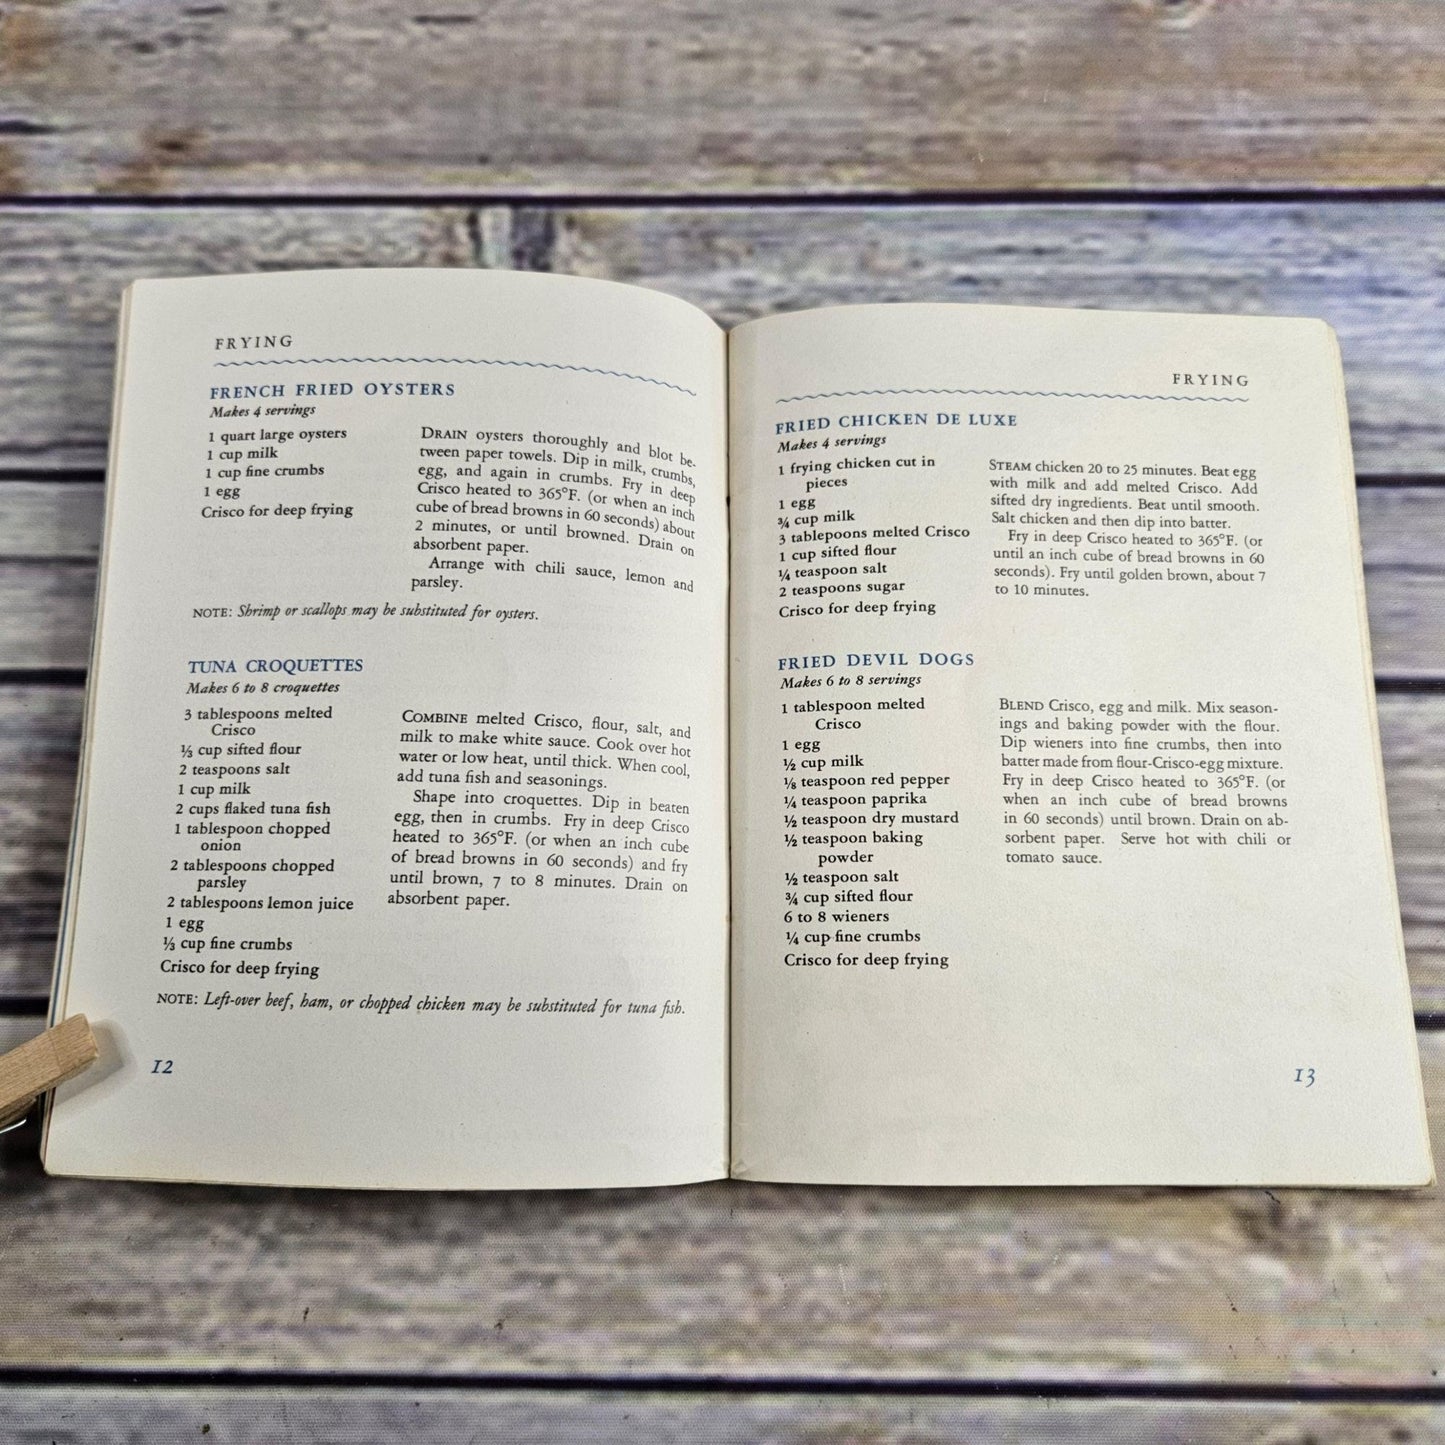 FRYING
FRENCH FRIED OYSTERS
Makes 4 servings
1 quart large oysters
1 cup milk
1 cup fine crumbs
1 egg
Crisco for deep frying
DRAIN oysters thoroughly and blot be-
tween paper towels. Dip in milk, crumbs,
egg, and again in crumbs. Fry in deep
Crisco heated to 365°F. (or when an inch
cube of bread browns in 60 seconds) about
2 minutes, or until browned. Drain on
absorbent paper.
Arrange with chili sauce, lemon and
parsley.
NOTE: Shrimp or scallops may be substituted for oysters.
TUNA CROQUETTES
Makes 6 to 8 croquettes
3 tablespoons melted
Crisco
⅓ cup sifted flour
2 teaspoons salt
1 cup milk
2 cups flaked tuna fish
1 tablespoon chopped
onion
2 tablespoons chopped
parsley
2 tablespoons lemon juice
1 egg
⅓ cup fine crumbs
Crisco for deep frying
COMBINE melted Crisco, flour, salt, and
milk to make white sauce. Cook over hot
water or low heat, until thick. When cool,
add tuna fish and seasonings.
Shape into croquettes. Dip in beaten
egg, then in crumbs. Fry in deep Crisco
heated to 365°F. (or when an inch cube
of bread browns in 60 seconds) and fry
until brown, 7 to 8 minutes. Drain on
absorbent paper.
NOTE: Left-over beef, ham, or chopped chicken may be substituted for tuna fish.
12
FRYING
FRIED CHICKEN DE LUXE
Makes 4 servings
1 frying chicken cut in
pieces
1 egg
¾ cup milk
3 tablepoons melted Crisco
1 cup sifted flour
¼ teaspoon salt
2 teaspoons sugar
Crisco for deep frying
STEAM chicken 20 to 25 minutes. Beat egg
with milk and add melted Crisco. Add
sifted dry ingredients. Beat until smooth.
Salt chicken and then dip into batter.
Fry in deep Crisco heated to 365°F. (or
until an inch cube of bread browns in 60
seconds). Fry until golden brown, about 7
to 10 minutes.
FRIED DEVIL DOGS
Makes 6 to 8 servings
1 tablespoon melted
Crisco
1 egg
½ cup milk
⅛ teaspoon red pepper
¼ teaspoon paprika
½ teaspoon dry mustard
½ teaspoon baking
powder
½ teaspoon salt
¾ cup sifted flour
6 to 8 wieners
¼ cup fine crumbs
Crisco for deep frying
BLEND Crisco, egg and milk. Mix season-
ings and baking powder with the flour.
Dip wieners into fine crumbs, then into
batter made from flour-Crisco-egg mixture.
Fry in deep Crisco heated to 365°F. (or
when an inch cube of bread browns
in 60 seconds) until brown. Drain on ab-
sorbent paper. Serve hot with chili or
tomato sauce.
13